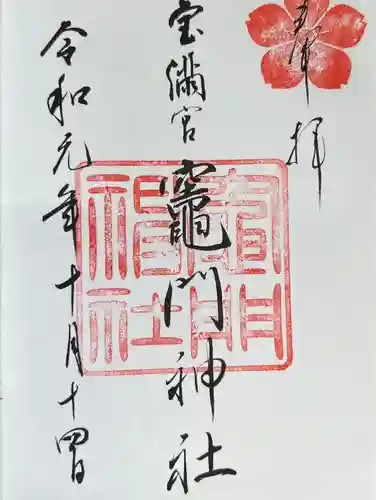 奉拝
宝満宮
竈門神社
令和元年十月十四日
竈門神社